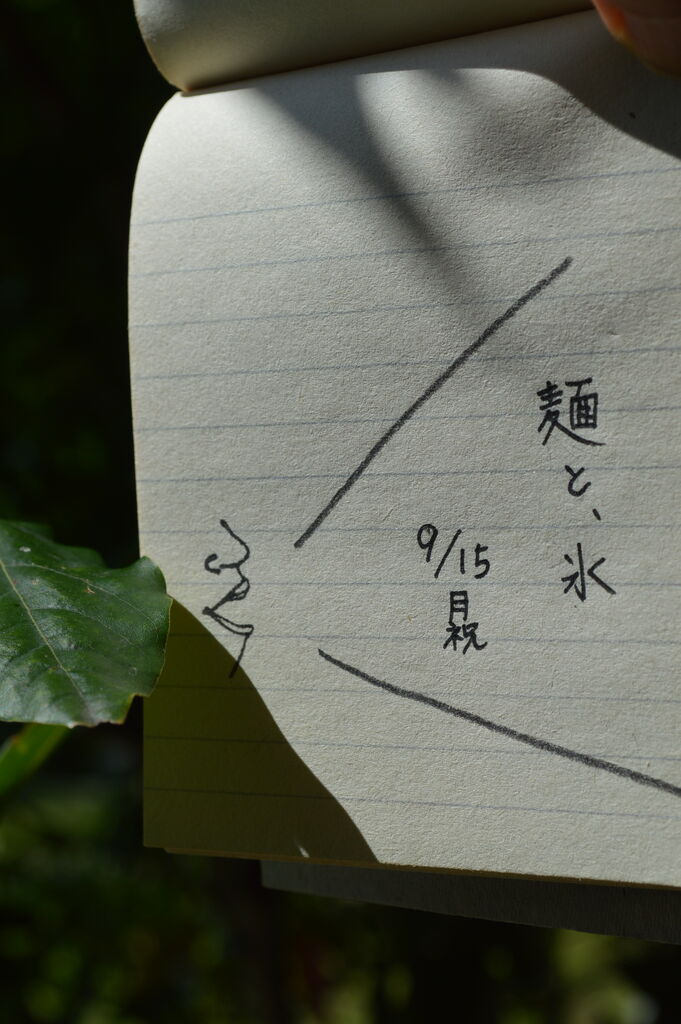 麺と、氷
9/15
月
祝